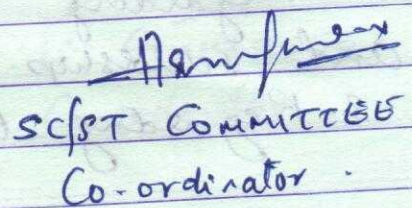 SC/ST COMMITTEE
Co-ordinator.